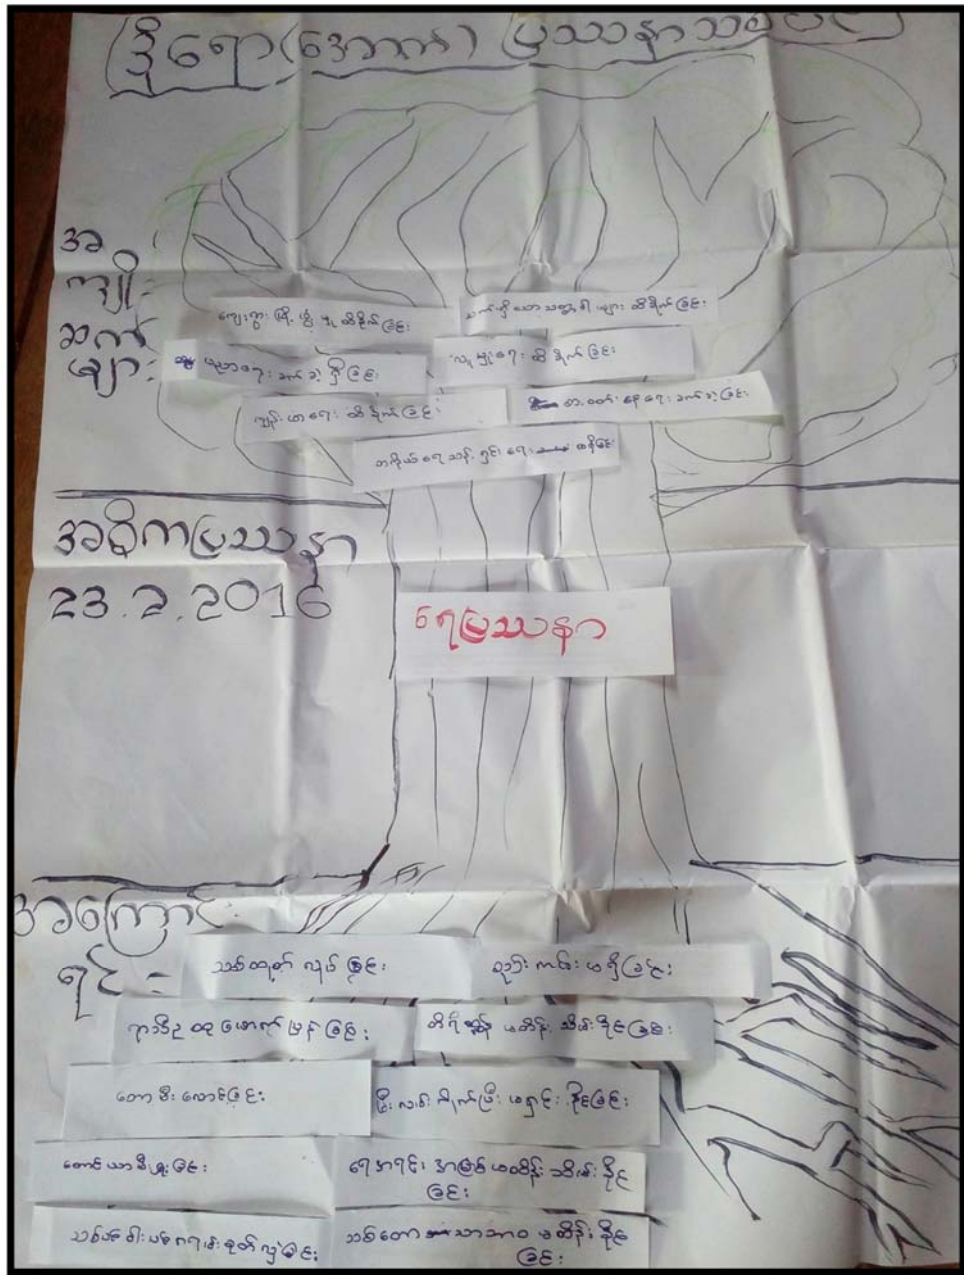 ဒီရော(အောက်) ပြဿနာသစ်ပင်
အ
ကျိုး
ဆက်
များ
ကျေးရွာ ဖြိုးမှု ထိခိုက်ခြင်း
သက်ရှိသောသတ္တဝါများ ထိခိုက်ခြင်း
ပညာရေး ခက်ခဲရှိခြင်း
လူမှုရေး ထိခိုက်ခြင်း
ကျန်းမာရေး ထိခိုက်ခြင်း
စားဝတ်နေရေး ခက်ခဲခြင်း
တကိုယ်ရေသန့်ရှင်းရေး ထိခိုက်ခြင်း
အဓိကပြဿနာ
23.2.2016
ရေပြဿနာ
အကြောင်း
ရင်း =
သစ်ထုတ်လုပ်ခြင်း
စည်းကမ်းမရှိခြင်း
ရာသီဥတုဖောက်ပြန်ခြင်း
မထိန်းသိမ်းနိုင်ခြင်း
တောမီးလောင်ခြင်း
မီး ပြီးမရှင်းနိုင်ခြင်း
တောင်ယာမီးရှို့ခြင်း
ရေအရင်းအမြစ်မထိန်းသိမ်းနိုင်
ခြင်း
သစ်ပင်ဝါးပင်များခုတ်လှဲခြင်း
သစ်တောသဘာဝမထိန်းနိုင်
ခြင်း